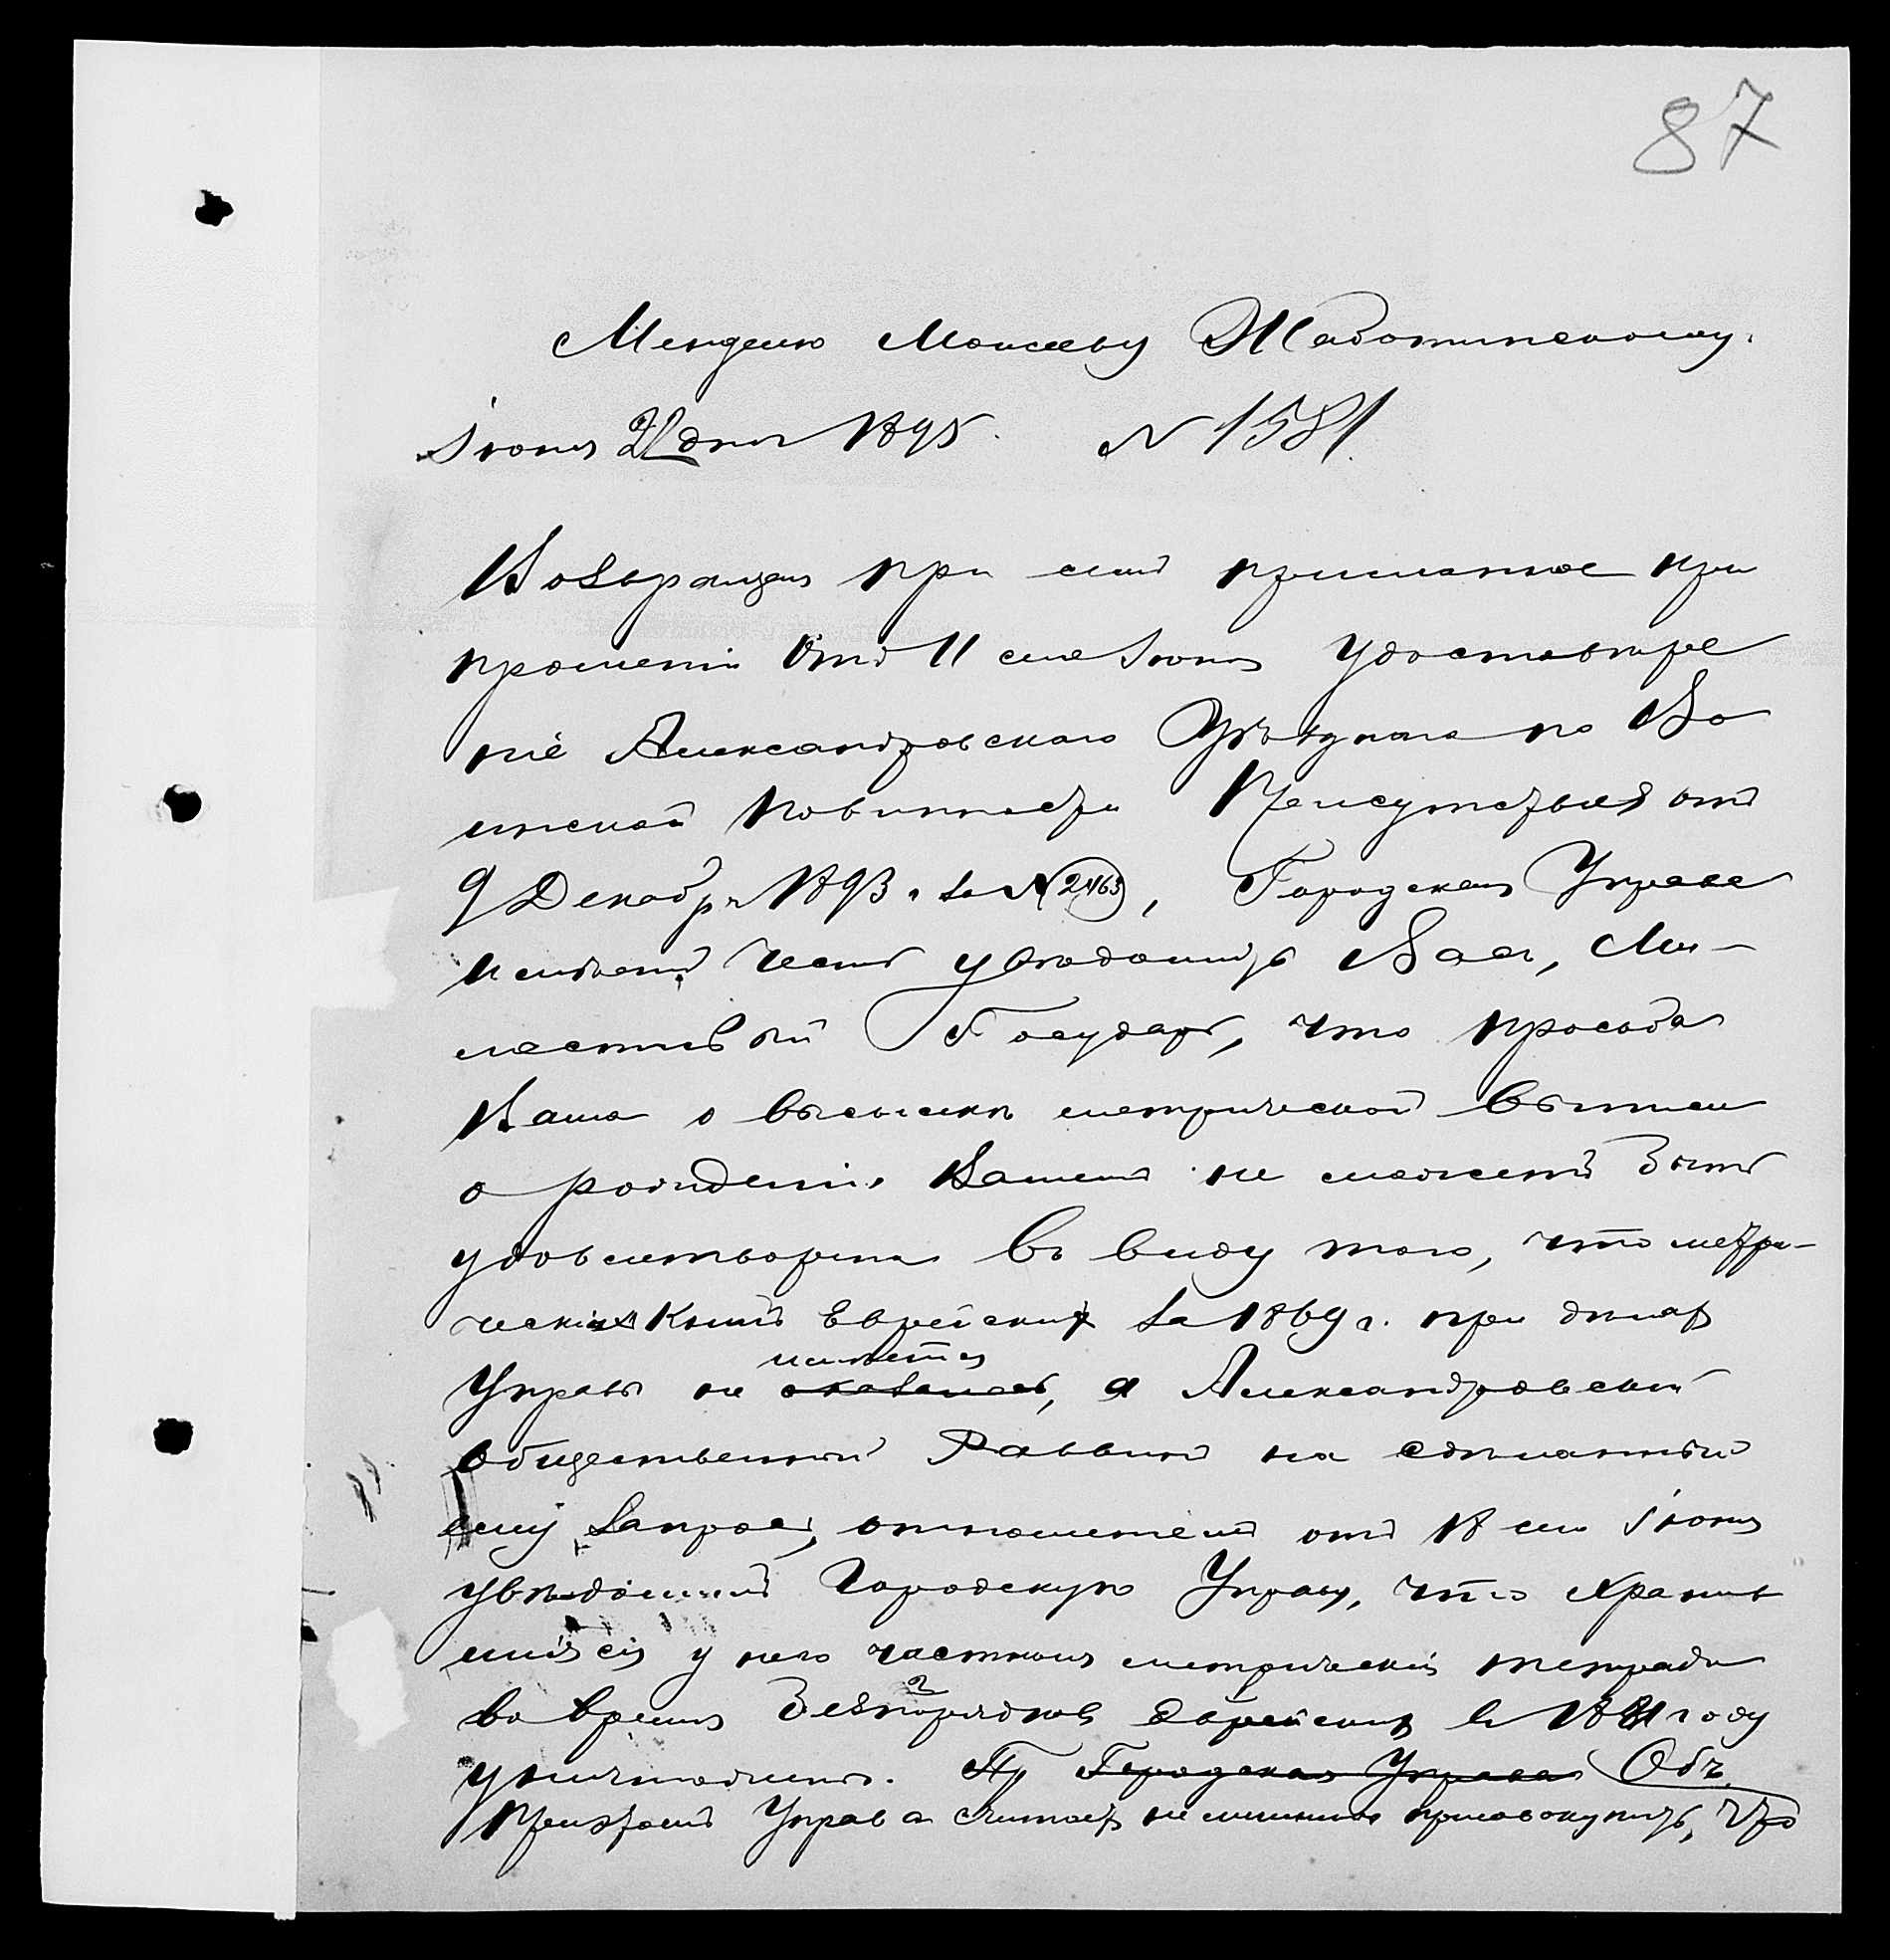 87
Менделю Моисееву Жаботинскому.
Іюня 21 дня 1895. N 1581.
Возвращая при семъ присланное при
прошеніи отъ 11 сего Іюня удостовѣре
ніе Александровскаго Уѣзднаго по Во
инской повинности Присутствія отъ
9 Декабря 1893 г. за N 2463, Городская Управа
имѣетъ честь увѣдомить Васъ, Ми-
лостивый Государь, что просьба
Ваша о высылкѣ метрической выписи
о рожденіи Вашемъ не можетъ быть
удовлетворена въ виду того, что метри-
ческихъ книгъ Еврейскихъ за 1869 г. при дѣлахъ
имѣется
Управы не оказалось, а Александровскій
общественный Раввинъ на сдѣланный
ему запросъ, отношеніемъ отъ 18 сего Іюня
увѣдомилъ Городскую Управу, что хранив
шіяся у него частныя метрическія тетради
во время безпорядковъ еврейскихъ въ 1881 году
уничтожены. Пр Городская Управа Объ
При этомъ Управа считаетъ не лишнимъ присовокупить, что